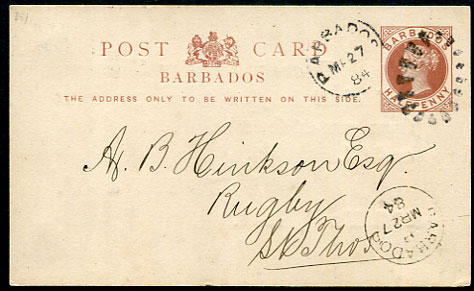 POST CARD
BARBADOS
THE ADDRESS ONLY TO BE WRITTEN ON THIS SIDE.
BARBADOS
HALFPENNY
BARBADOS
MR 27
84
A. B. Hinkson Esq.
Rugby
St Thos
BARBADOS
MR 27
84